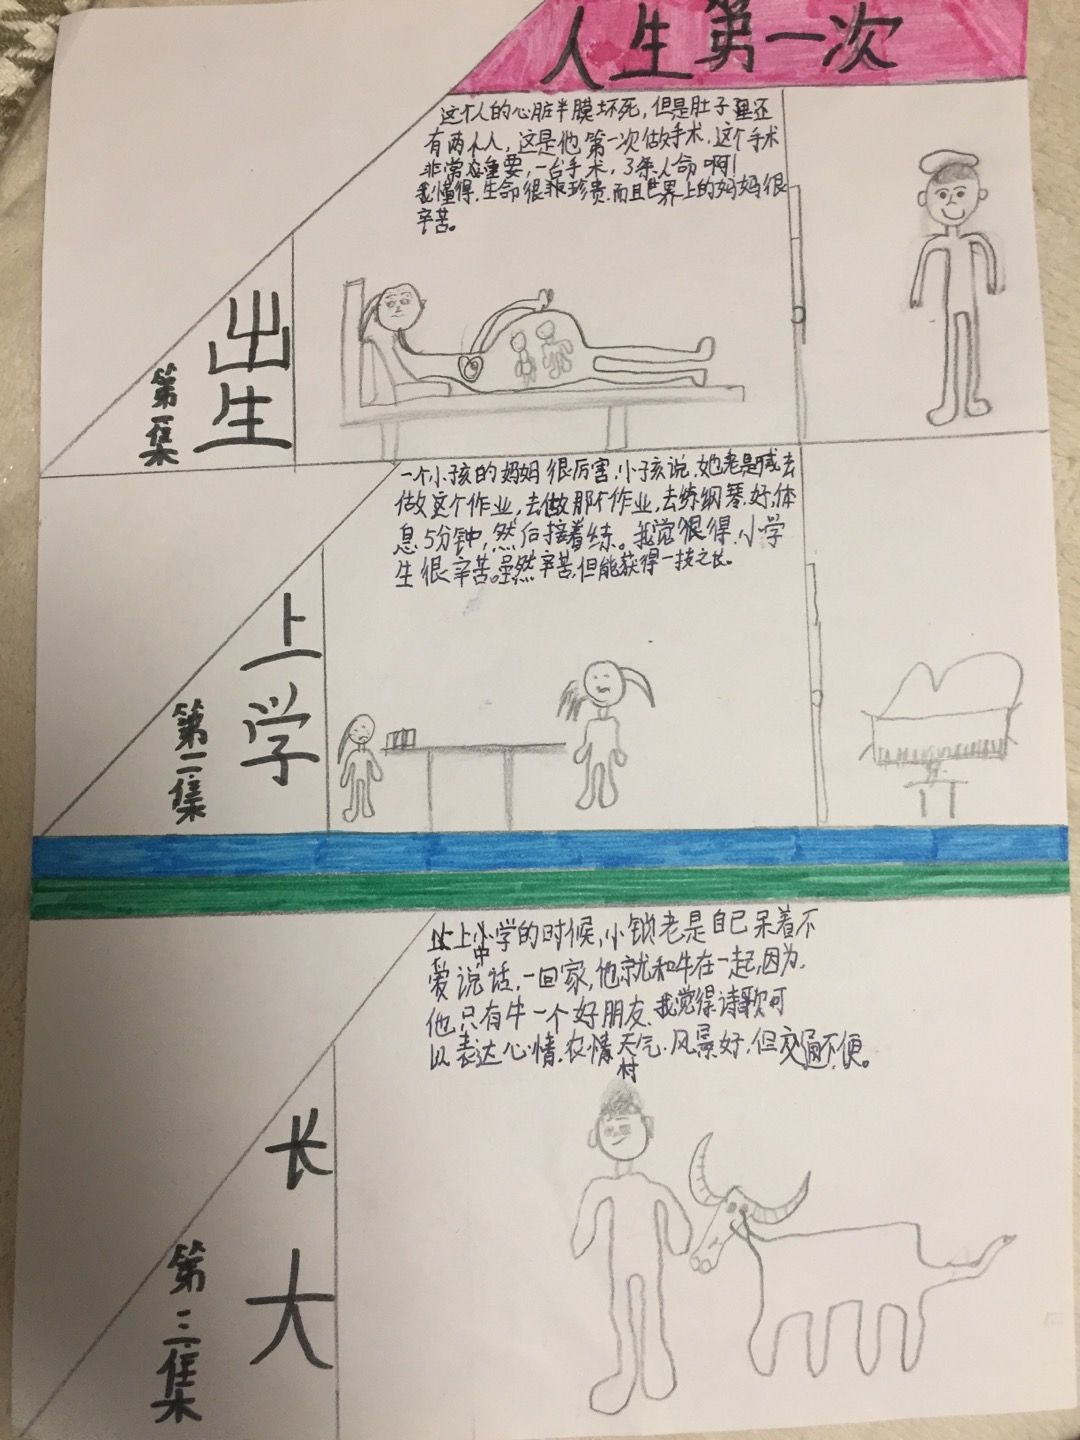 人生第一次
这个人的心脏半膜坏死,但是肚子里还
有两个人,这是他第一次做手术,这个手术
非常重要,一台手术,3条人命啊!
我懂得,生命很珍贵.而且世界上的妈妈很
辛苦。
出生
第一集
一个小孩的妈妈很厉害,小孩说,她老是喊去
做这个作业,去做那个作业,去练纲琴,好,体
息5分钟,然后接着练。我觉得,小学
生很辛苦。虽然辛苦,但能获得一技之长。
上学
第二集
上中学的时候,小锁老是自己呆着不
爱说话,一回家,他就和牛在一起,因为,
他只有牛一个好朋友.我觉得诗歌可
以表达心情,农村天气.风景好,但交通不便。
长大
第三集